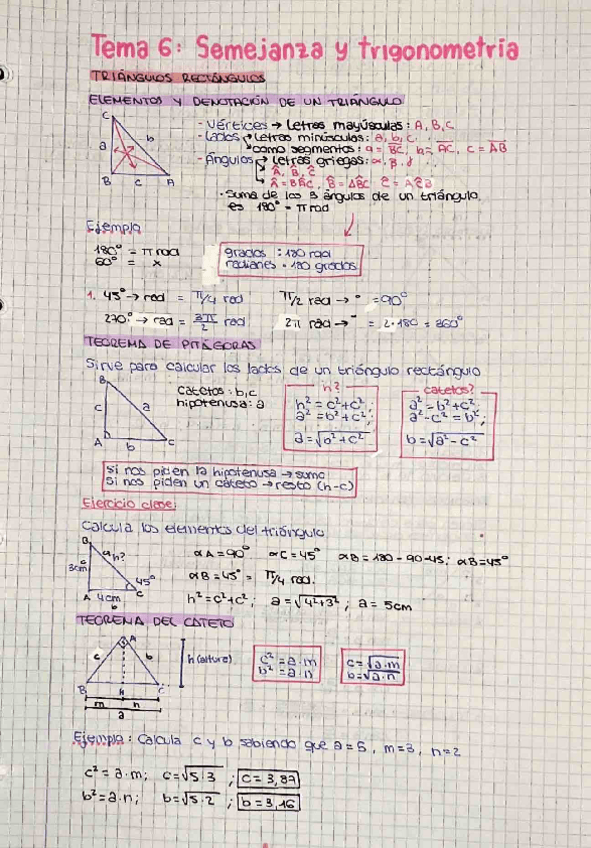 Tema 6: Semejanza y trigonometría
TRIÁNGULOS RECTÁNGULOS
ELEMENTOS Y DENOTACIÓN DE UN TRIÁNGULO
C
a
b
B
c
A
- Vértices → Letras mayúsculas: A, B, C
- Lados → Letras minúsculas: a, b, c
como segmentos: a = BC, b = AC, c = AB
- Ángulos → Letras griegas: α, β, γ
Â, B̂, Ĉ
Â = BÂC, B̂ = AB̂C Ĉ = AĈB
· Suma de los 3 ángulos de un triángulo
es 180° = π rad
Ejemplo
180° = π rad
60° = x
grados : 180 rad
radianes = 180 grados
1. 45° → rad = π/4 rad
π/2 rad → ° = 90°
270° → rad = 3π/2 rad
2π rad → ° = 2·180 = 360°
TEOREMA DE PITÁGORAS
Sirve para calcular los lados de un triángulo rectángulo
B
c
a
A
b
C
catetos: b, c
hipotenusa: a
h?
h² = c² + c²;
a² = b² + c²;
a = √b² + c²
catetos?
a² = b² + c²;
a² - c² = b²;
b = √a² - c²
Si nos piden la hipotenusa → sumo
Si nos piden un cateto → resto (h-c)
Ejercicio clase:
Calcula los elementos del triángulo
B
c
3cm
a
h?
45°
A
4cm
C
b
αA = 90° αC = 45° αB = 180 - 90 - 45; αB = 45°
αB = 45° = π/4 rad.
h² = c² + c²; a = √4² + 3²; a = 5cm
TEOREMA DEL CATETO
A
c
b
h (altura)
B
H
C
m
n
a
c² = a·m
b² = a·n
c = √a·m
b = √a·n
Ejemplo: Calcula c y b sabiendo que a = 5, m = 3, n = 2
c² = a·m; c = √5·3; c = 3,87
b² = a·n; b = √5·2; b = 3,16